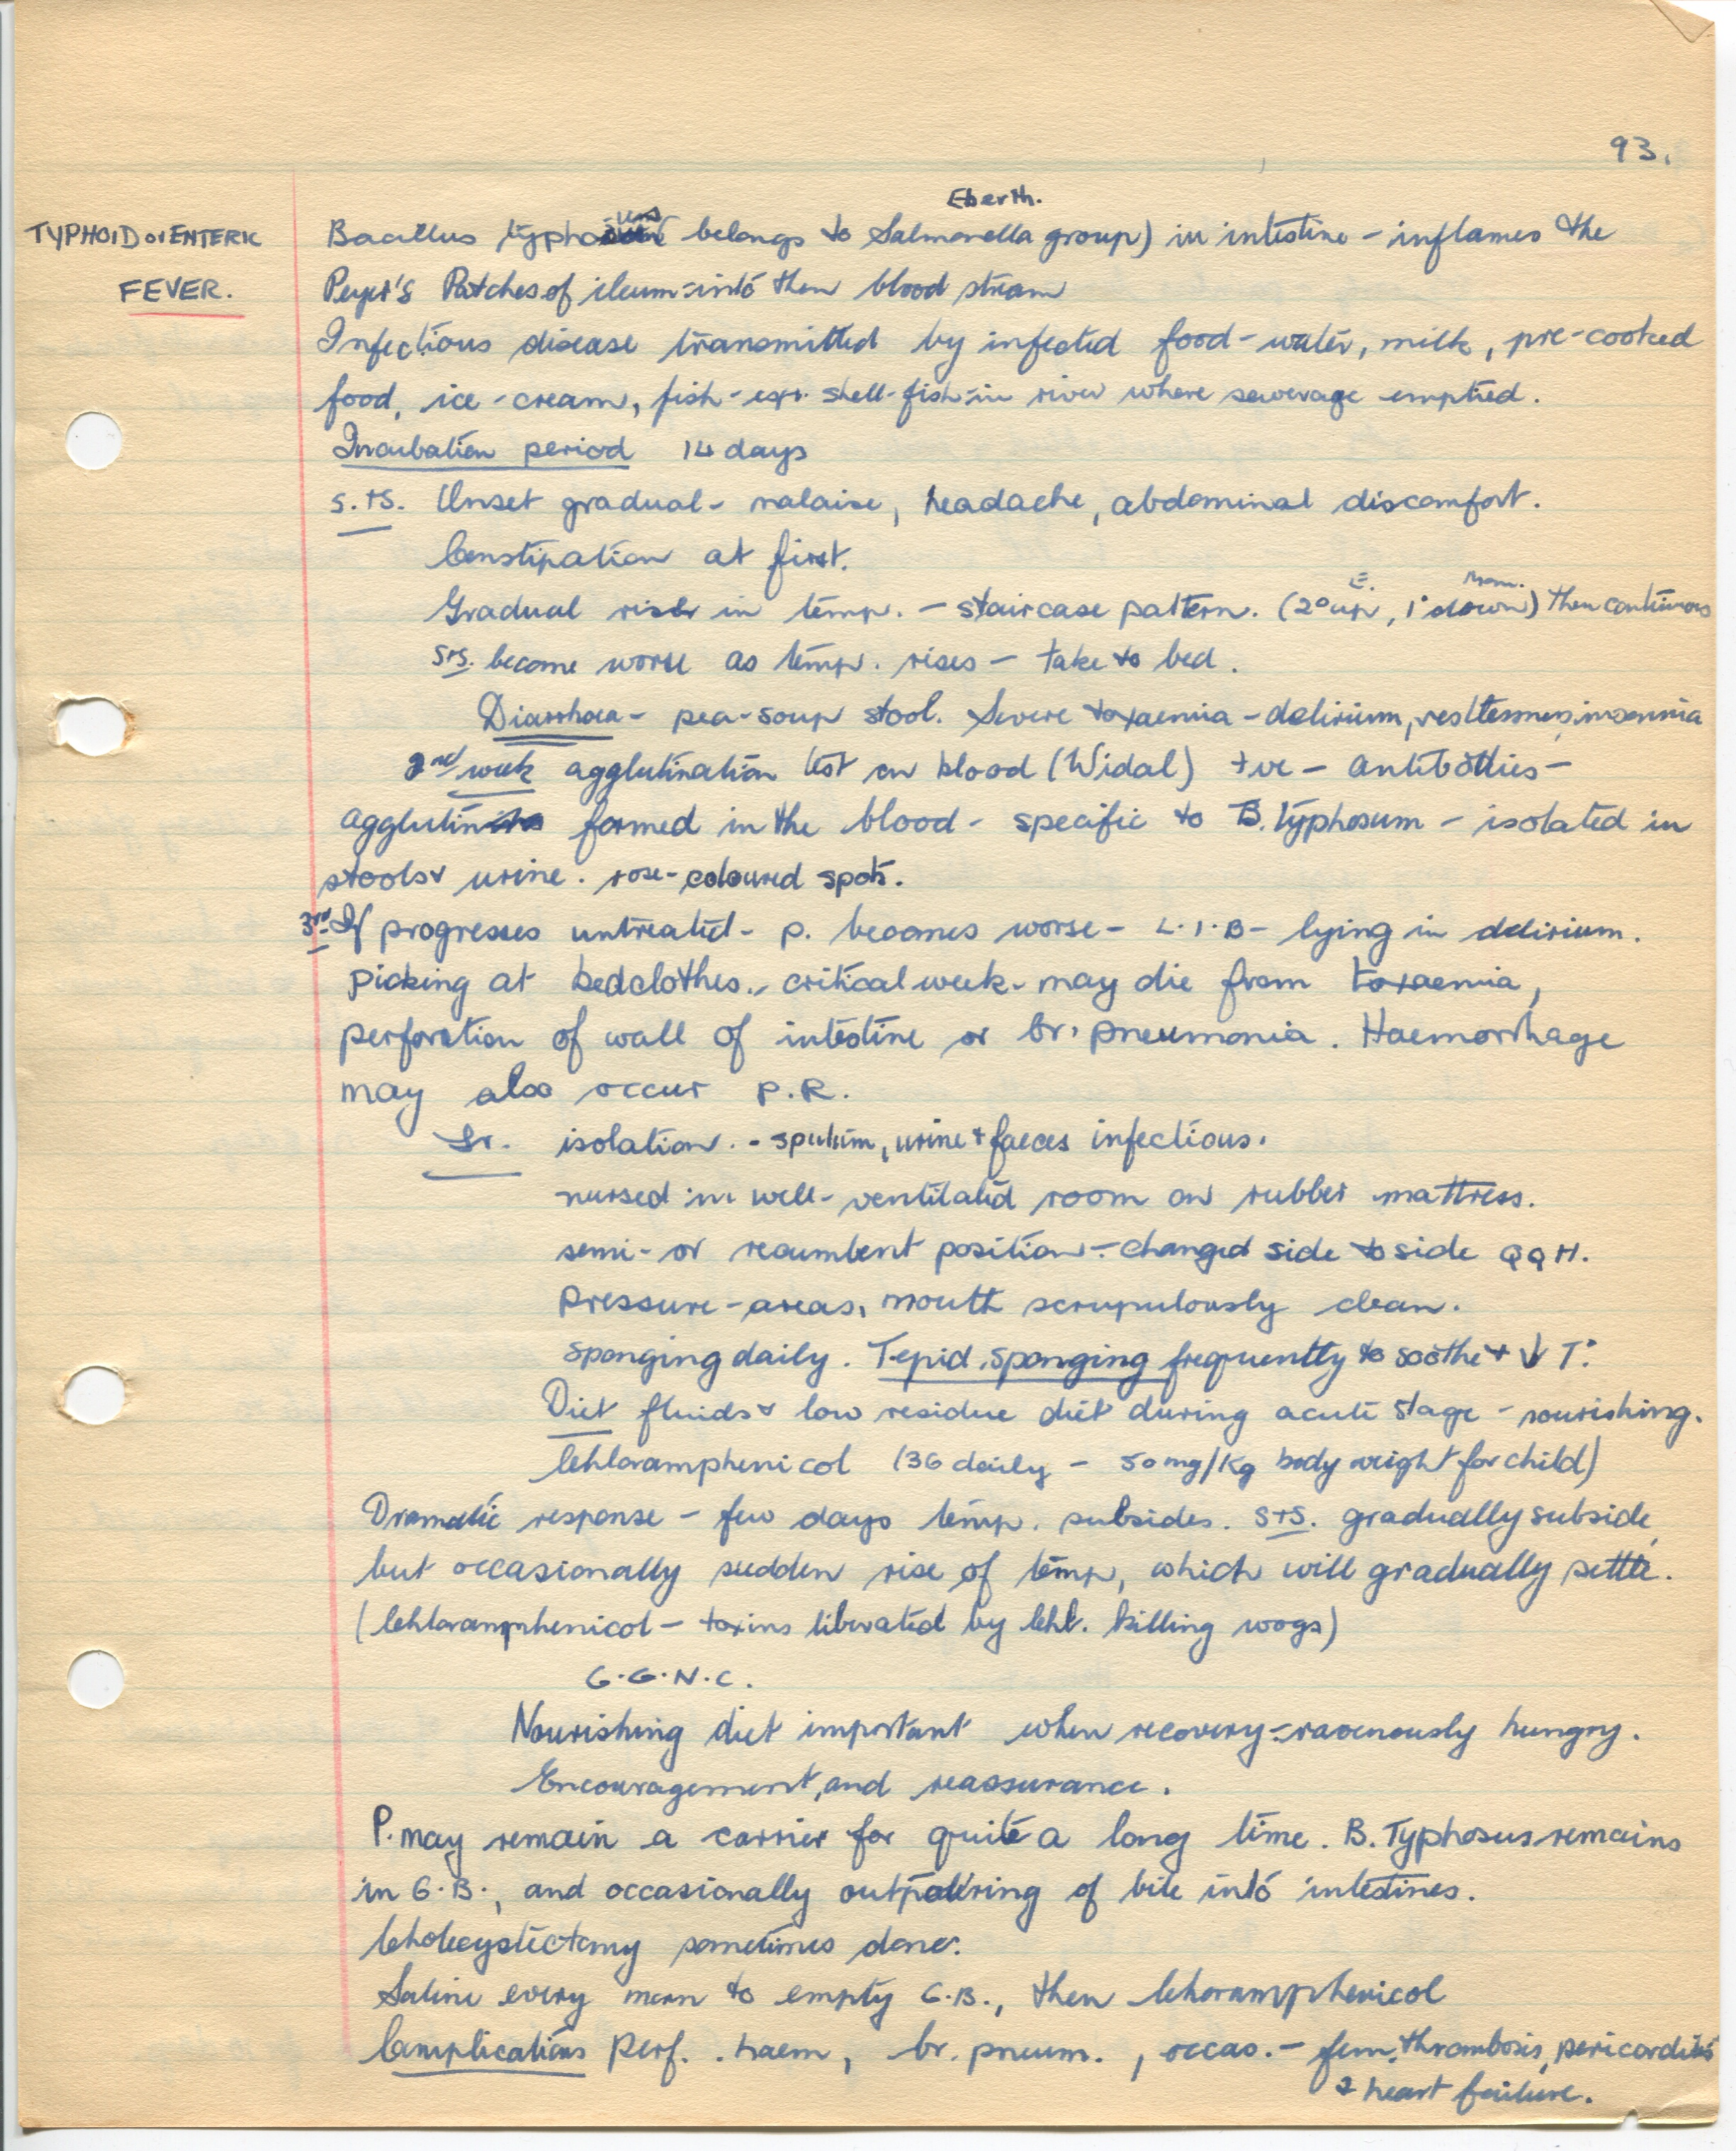 93.
Eberth.
TYPHOID or ENTERIC
FEVER.
Bacillus typhosus belongs to Salmonella group) in intestine - inflames the
Peyer's Patches of ileum - into then blood stream
Infectious disease transmitted by infected food - water, milk, pre-cooked
food, ice-cream, fish - esp. shell-fish - in river where sewerage emptied.
Incubation period 14 days
S.+S. Onset gradual - malaise, headache, abdominal discomfort.
Constipation at first.
E. Morn.
Gradual rise in temp. - staircase pattern. (2° up, 1° down) then continuous
S+S. become worse as temp. rises - take to bed.
Diarrhoea - pea-soup stool. Severe toxaemia - delirium, restlessness, insomnia
2nd week agglutination test on blood (Widal) +ve - antibodies -
agglutinins formed in the blood - specific to B. Typhosum - isolated in
stools & urine. rose-coloured spots.
3rd If progresses untreated - p. becomes worse - L.I.B - lying in delirium.
picking at bedclothes. - critical week - may die from toxaemia,
perforation of wall of intestine or br. pneumonia. Haemorrhage
may also occur P.R.
Tr. isolation. - sputum, urine + faeces infectious.
nursed in well-ventilated room on rubber mattress.
semi- or recumbent position - changed side to side QQH.
pressure-areas, mouth scrupulously clean.
Sponging daily. Tepid sponging frequently to soothe + ↓ T.°
Diet fluids & low residue diet during acute stage - nourishing.
Chloramphenicol (3G daily - 50mg/Kg body weight for child)
Dramatic response - few days temp. subsides. S+S. gradually subside,
but occasionally sudden rise of temp, which will gradually settle.
(Chloramphenicol - toxins liberated by Chl. killing wogs)
G.G.N.C.
Nourishing diet important when recovery - ravenously hungry.
Encouragement, and reassurance.
P. may remain a carrier for quite a long time. B. Typhosus remains
in G.B., and occasionally outpouring of bile into intestines.
Cholecystectomy sometimes done.
Saline every morn to empty G.B., then Choramphenicol
Complications Perf. . haem, br. pneum. , occas. - fem. thrombosis, pericarditis
& heart failure.